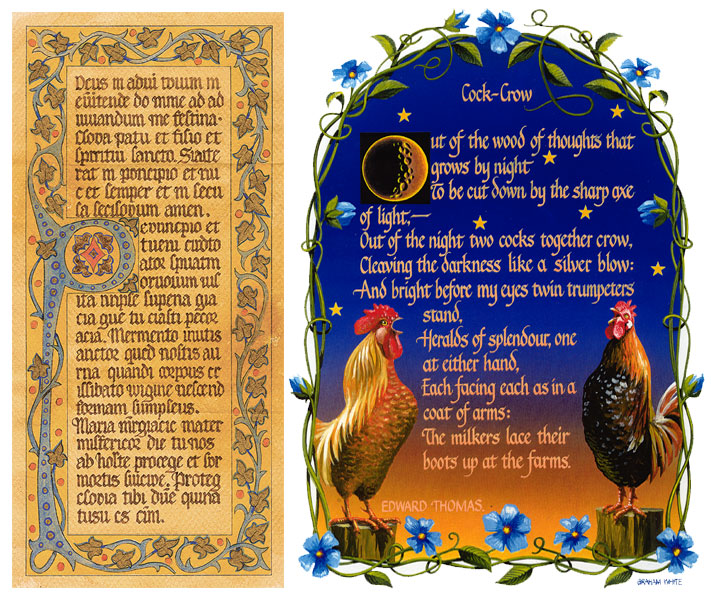 Deus in adiui toium m
eūitende do mme ad ad
uuiandum me festina·
Clovia patu et fisio et
spiritui sancto. Siaite
rat in poncipio et nu
c et semper et in secu
la amen.
et
tueni
ator
uita supena gia
cia gue tu ciasti pecor
acia. Mermento inutis
anctor qued nostis au
rna quandi corpus ex
issibato uigine nescend
formam sumpseus.
Maria mirgiacie mater
misericor die tu nos
ab hoste procege et hor
mortis suicive. Proteg
clovia tibi due quina
tusu es cim.
Cock-Crow
Out of the wood of thoughts that
grows by night
To be cut down by the sharp axe
of light,—
Out of the night two cocks together crow,
Cleaving the darkness like a silver blow:
And bright before my eyes twin trumpeters
stand,
Heralds of splendour, one
at either hand,
Each facing each as in a
coat of arms:
The milkers lace their
boots up at the farms.
EDWARD THOMAS.
GRAHAM WHITE